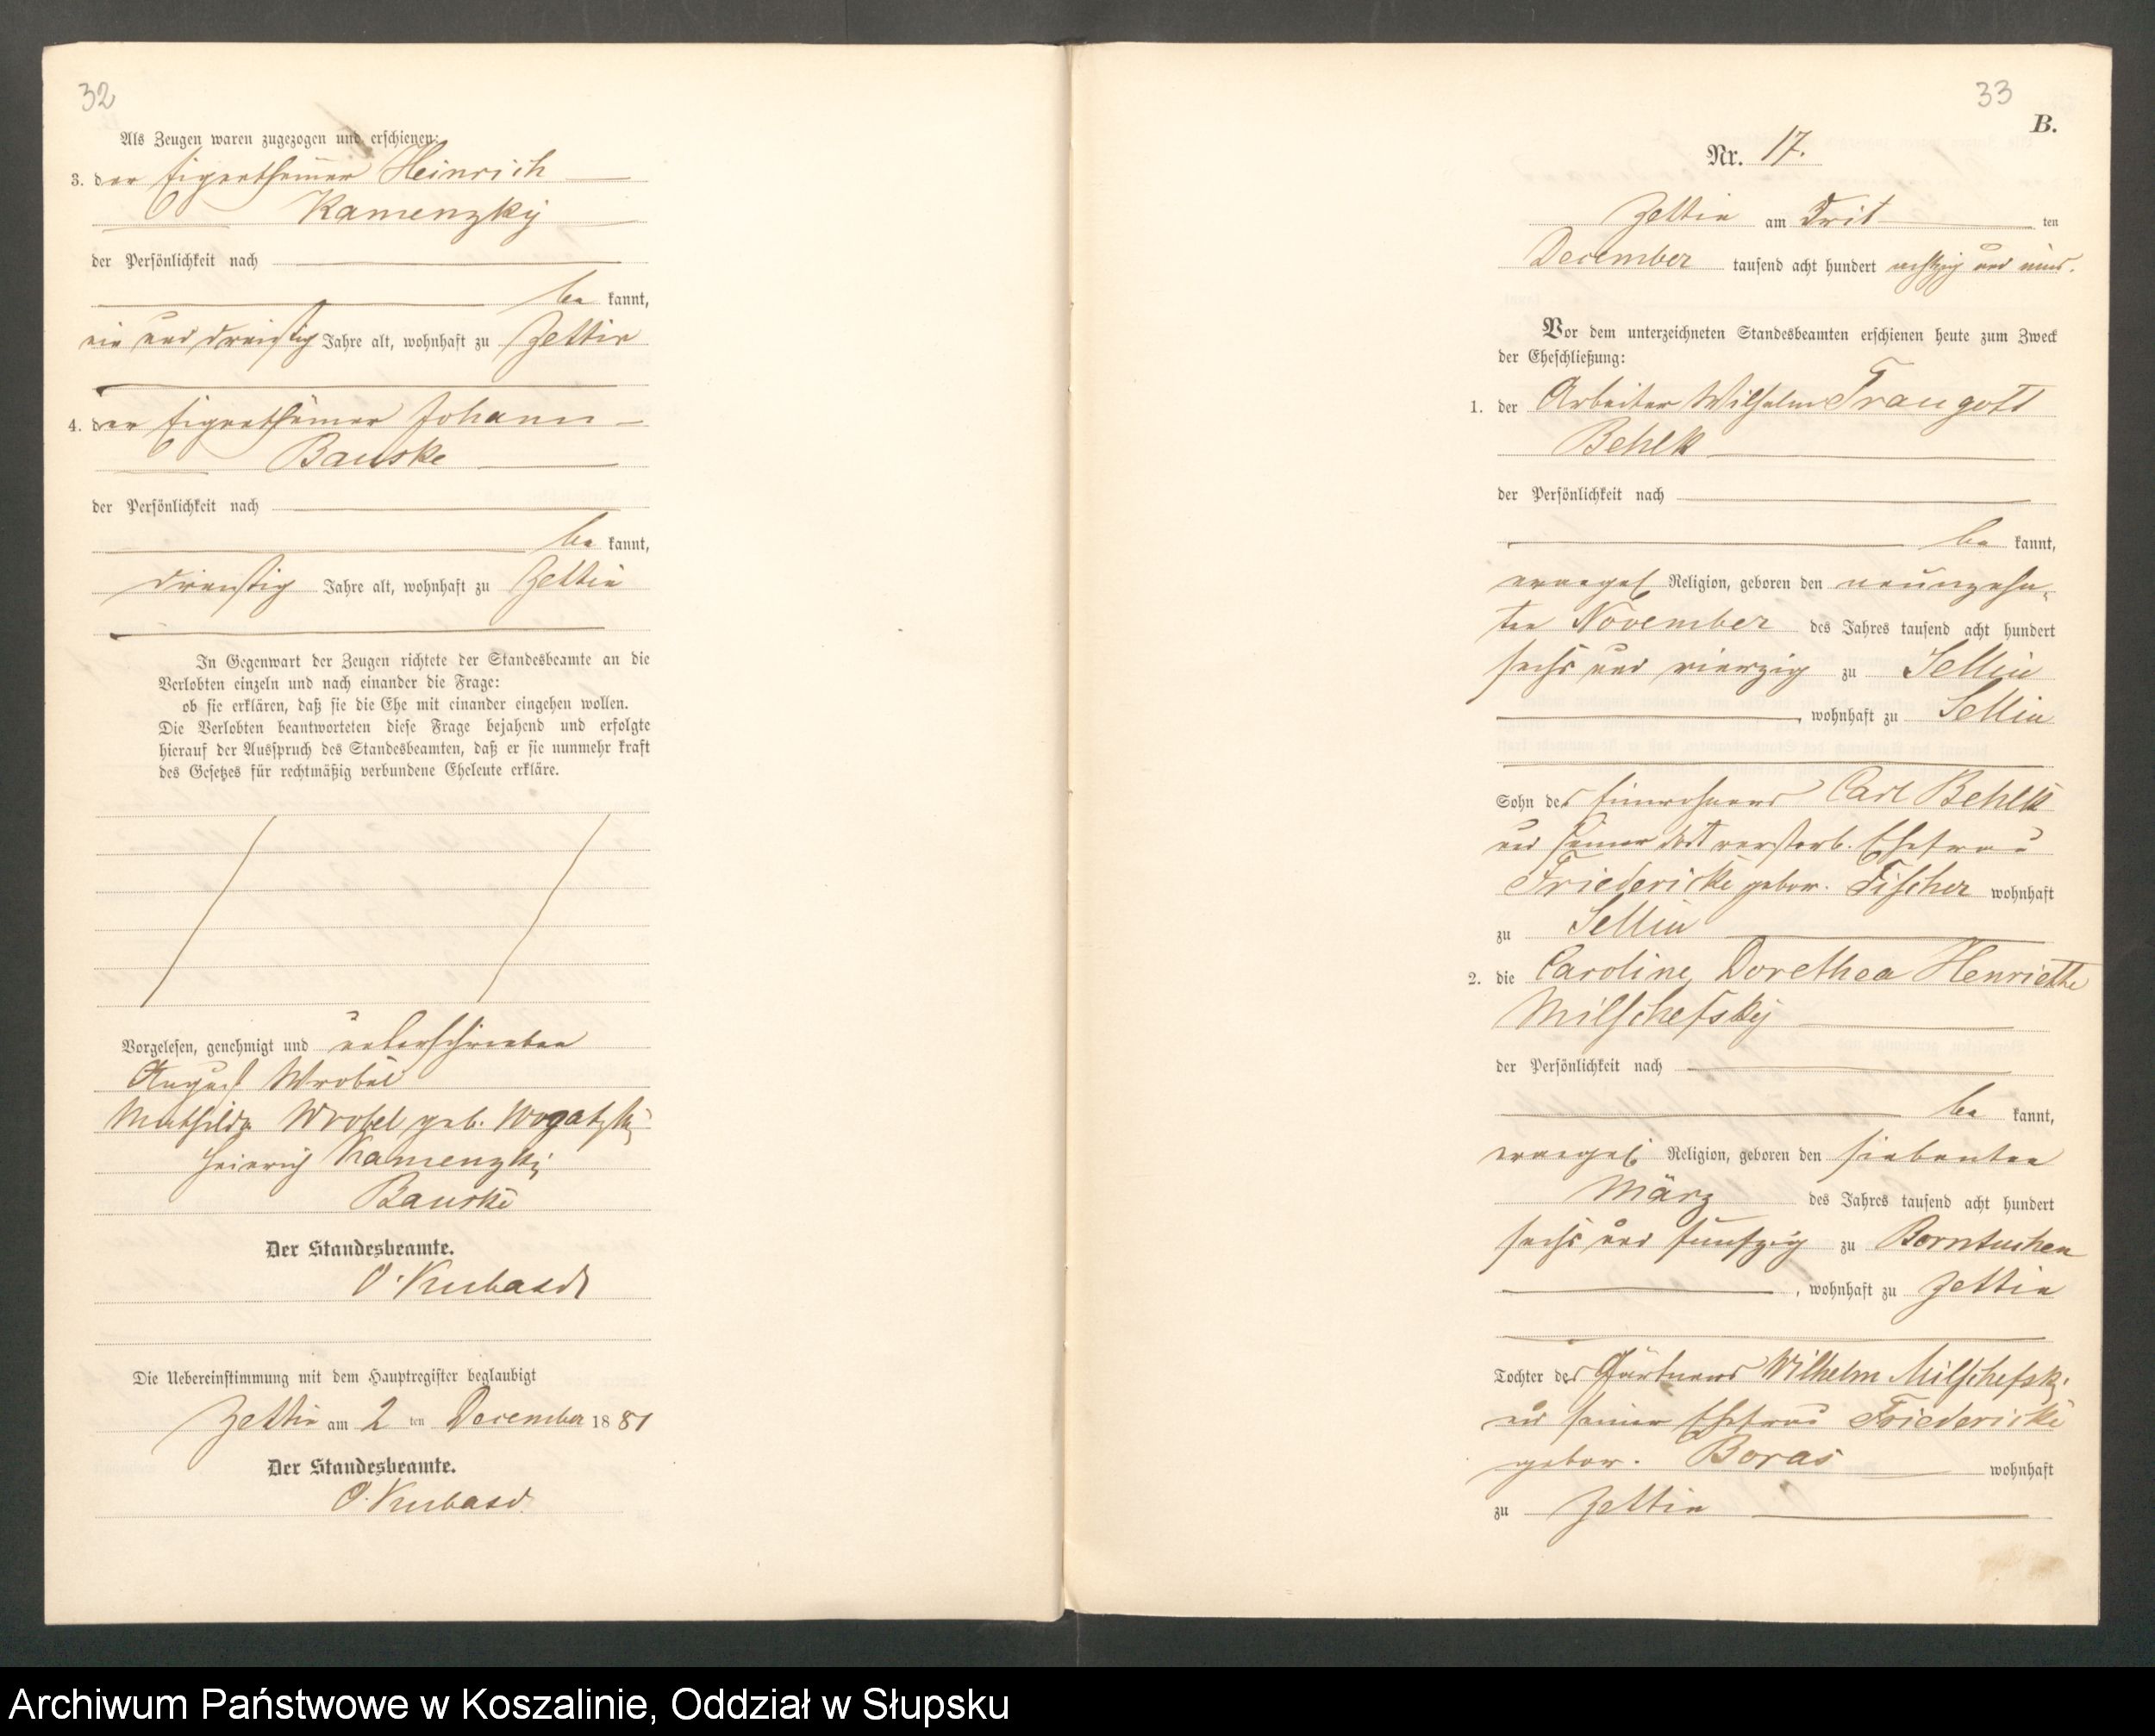 32
Als Zeugen waren zugezogen und erschienen:
3. der Eigenthümer Heinrich
Kamenzky
der Persönlichkeit nach
be kannt,
ein und dreißig Jahre alt, wohnhaft zu Zettin
4. der Eigenthümer Johann
Bauske
der Persönlichkeit nach
be kannt,
dreißig Jahre alt, wohnhaft zu Zettin
In Gegenwart der Zeugen richtete der Standesbeamte an die
Verlobten einzeln und nach einander die Frage:
ob sie erklären, daß sie die Ehe mit einander eingehen wollen.
Die Verlobten beantworteten diese Frage bejahend und erfolgte
hierauf der Ausspruch des Standesbeamten, daß er sie nunmehr kraft
des Gesetzes für rechtmäßig verbundene Eheleute erkläre.
Vorgelesen, genehmigt und unterschrieben
August Wrobel
Mathilde Wrobel geb. Wogatzky
Heinrich Kamenzky
Bauske
Der Standesbeamte.
O. Kubasch
Die Uebereinstimmung mit dem Hauptregister beglaubigt
Zettin am 2 ten December 18 81
Der Standesbeamte.
33
B.
Nr. 17.
Zettin am Drit ten
December tausend acht hundert achtzig und eins.
Vor dem unterzeichneten Standesbeamten erschienen heute zum Zweck
der Eheschließung:
1. der Arbeiter Wilhelm Traugott
Behlk
der Persönlichkeit nach
be kannt,
evangel. Religion, geboren den neunzehn-
ten November des Jahres tausend acht hundert
sechs und vierzig zu Sellin
, wohnhaft zu Sellin
Sohn des Einwohners Carl Behlk
und seiner dort verstorb. Ehefrau
Friedericke gebor. Fischer wohnhaft
zu Sellin
2. die Caroline, Dorethea Henriette
Milschefsky
der Persönlichkeit nach
be kannt,
evangel. Religion, geboren den siebenten
März des Jahres tausend acht hundert
sechs und fünfzig zu Borntuchen
, wohnhaft zu Zettin
Tochter des Gärtners Wilhelm Milschefsky
und seiner Ehefrau Friedericke
gebor. Boras wohnhaft
zu Zettin
Archiwum Państwowe w Koszalinie, Oddział w Słupsku